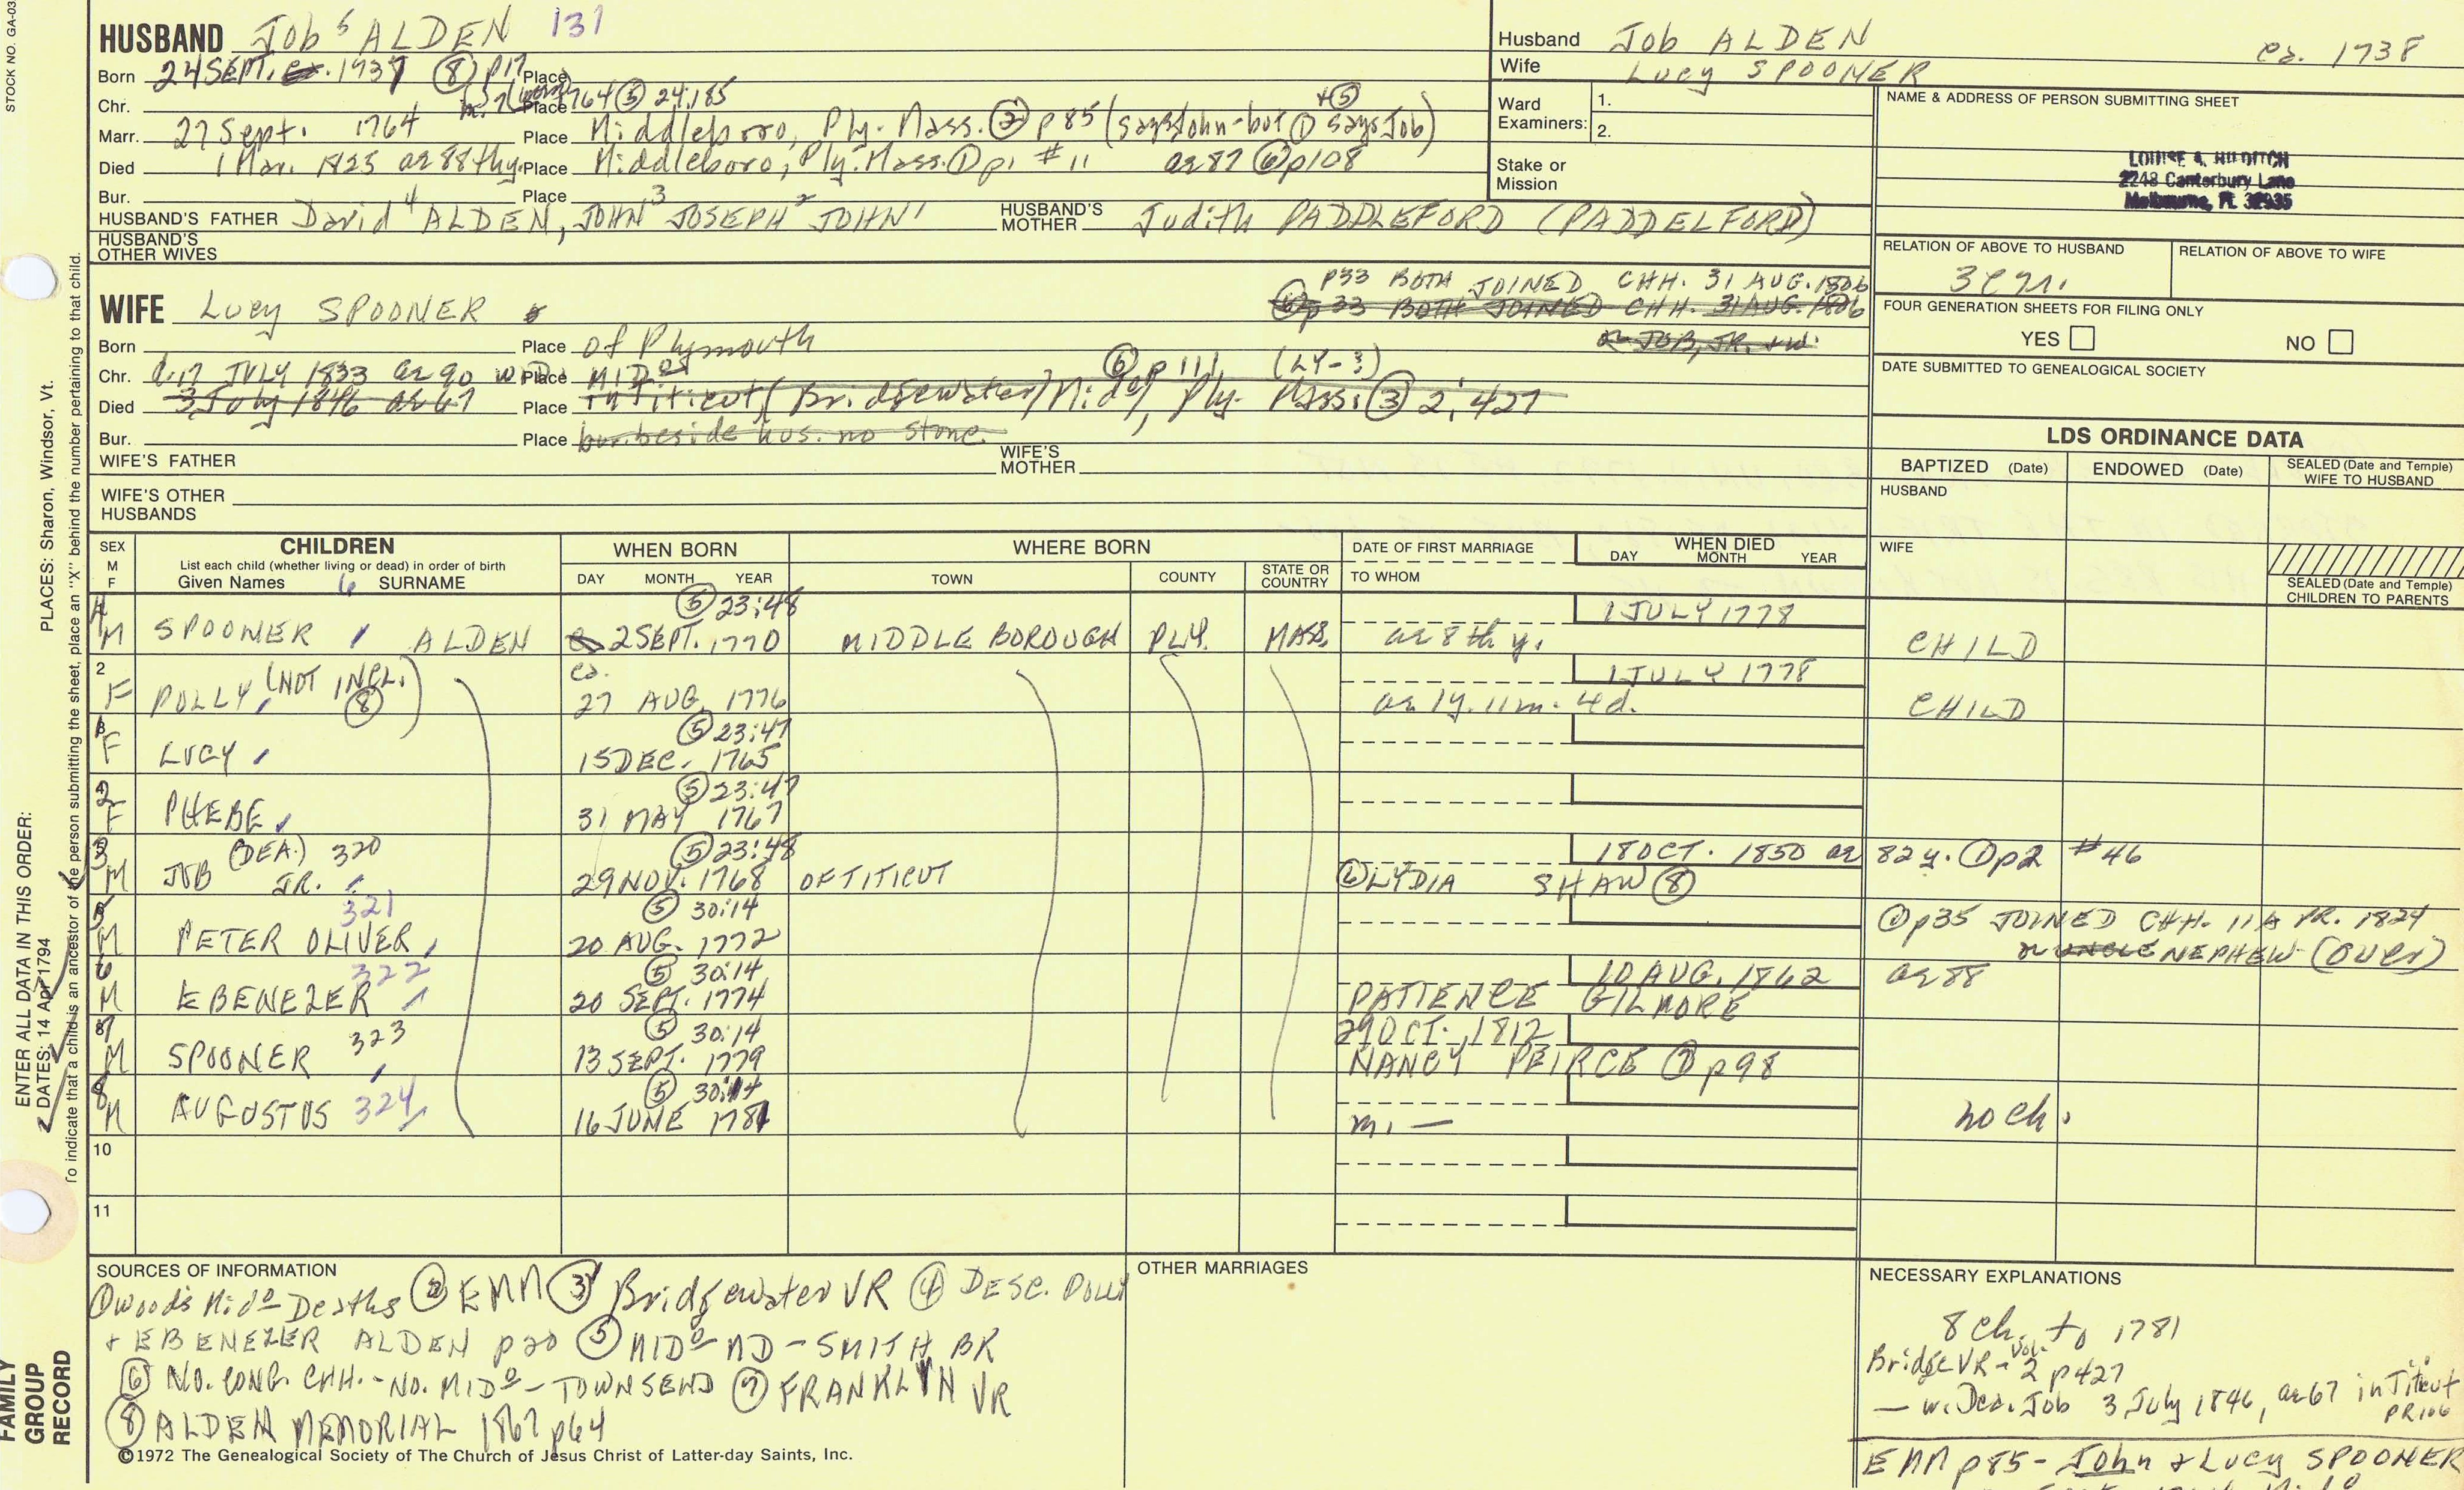 STOCK NO. GA-03
HUSBAND Job 5 ALDEN 131
Born 24 SEPT. 1737 ⑧ p17 Place
Chr. Place 1764 ⑤ 24:185
Marr. 27 Sept. 1764 Place Middleboro, Ply. Mass. ② p85 (says John - but ① says Job) + ⑤
Died 1 Mar. 1825 ae 88thy. Place Middleboro, Ply. Mass. ① p1 #11 ae 87 ⑥ p108
Bur. Place
HUSBAND'S FATHER David 4 ALDEN, JOHN 3 JOSEPH 2 JOHN 1 HUSBAND'S MOTHER Judith PADDLEFORD (PADDELFORD)
HUSBAND'S OTHER WIVES
Husband Job ALDEN ca. 1738
Wife Lucy SPOONER
Ward Examiners: 1.
2.
Stake or Mission
NAME & ADDRESS OF PERSON SUBMITTING SHEET
LOUISE A. HILDITCH
2248 Canterbury Lane
Melbourne, FL 32935
RELATION OF ABOVE TO HUSBAND RELATION OF ABOVE TO WIFE
FOUR GENERATION SHEETS FOR FILING ONLY
YES NO
DATE SUBMITTED TO GENEALOGICAL SOCIETY
p33 BOTH JOINED CHH. 31 AUG. 1806
⑥ p 33 BOTH JOINED CHH. 31 AUG. 1806
or JOB, JR. + w.
WIFE Lucy SPOONER
Born Place of Plymouth
Chr. d. 17 JULY 1833 ae 90 WID. Place MIDº ⑥ p 111 (LY-3)
Died 3 July 1846 ae 67 Place in Titicut (Bridgewater) Midº, Ply. Mass. ③ 2:427
Bur. Place bur. beside hus. no stone.
WIFE'S FATHER WIFE'S MOTHER
WIFE'S OTHER HUSBANDS
LDS ORDINANCE DATA
BAPTIZED (Date) ENDOWED (Date) SEALED (Date and Temple) WIFE TO HUSBAND
HUSBAND
WIFE
SEALED (Date and Temple) CHILDREN TO PARENTS
SEX M F CHILDREN List each child (whether living or dead) in order of birth Given Names 6 SURNAME
WHEN BORN DAY MONTH YEAR
WHERE BORN TOWN COUNTY STATE OR COUNTRY
DATE OF FIRST MARRIAGE TO WHOM
WHEN DIED DAY MONTH YEAR
⑤ 23:48 1 JULY 1778
4 M SPOONER ALDEN 2 SEPT. 1770 MIDDLEBOROUGH PLY. MASS. ae 8th y. CHILD
2 (NOT INCL. ⑧) ca. 1 JULY 1778
F POLLY 27 AUG. 1776 ae 1y. 11m. 4d. CHILD
⑤ 23:47
F LUCY 15 DEC. 1765
⑤ 23:47
2 F PHEBE 31 MAY 1767
(DEA.) 320 ⑤ 23:48 18 OCT. 1850 ae 82 y. ① p2 #46
3 M JOB JR. 29 NOV. 1768 OF TITICUT ⑥ LYDIA SHAW ⑧
321 ⑤ 30:14
5 M PETER OLIVER 20 AUG. 1772 p35 JOINED CHH. 11 APR. 1824
or UNCLE NEPHEW (OVER)
322 ⑤ 30:14 10 AUG. 1862 ae 88
6 M EBENEZER 20 SEPT. 1774 PATIENCE GILMORE
323 ⑤ 30:14 29 OCT. 1812
7 M SPOONER 13 SEPT. 1779 NANCY PEIRCE ⑦ p98
⑤ 30:14
8 M AUGUSTUS 324 16 JUNE 1781 m. — no ch.
10
11
SOURCES OF INFORMATION
① Wood's Midº Deaths ② EMM ③ Bridgewater VR ④ DESC. POLLY
+ EBENEZER ALDEN p20 ⑤ MIDº MD - SMITH BR
⑥ NO. CONG. CHH. - NO. MIDº - TOWNSEND ⑦ FRANKLIN VR
⑧ ALDEN MEMORIAL 1867 p64
©1972 The Genealogical Society of The Church of Jesus Christ of Latter-day Saints, Inc.
OTHER MARRIAGES
NECESSARY EXPLANATIONS
8 ch. to 1781
Bridge VR - Vol. 2 p427
— w. Dea. Job 3 July 1846, ae 67 "in Titicut"
PR106
EMM p85 - John & Lucy SPOONER
ENTER ALL DATA IN THIS ORDER:
DATES: 14 Apr 1794 PLACES: Sharon, Windsor, Vt.
To indicate that a child is an ancestor of the person submitting the sheet, place an "X" behind the number pertaining to that child.
FAMILY GROUP RECORD